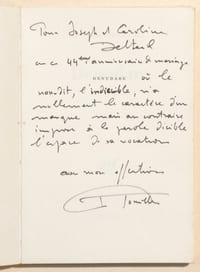 Pour Joseph et Caroline
Delteil
en ce 44ème anniversaire de mariage
DÉNUDARE
où le
non-dit, l'indicible, n'a
nullement le caractère d'un
manque mais au contraire
impose à la parole dicible
l'espace de sa vocation
avec mon affection